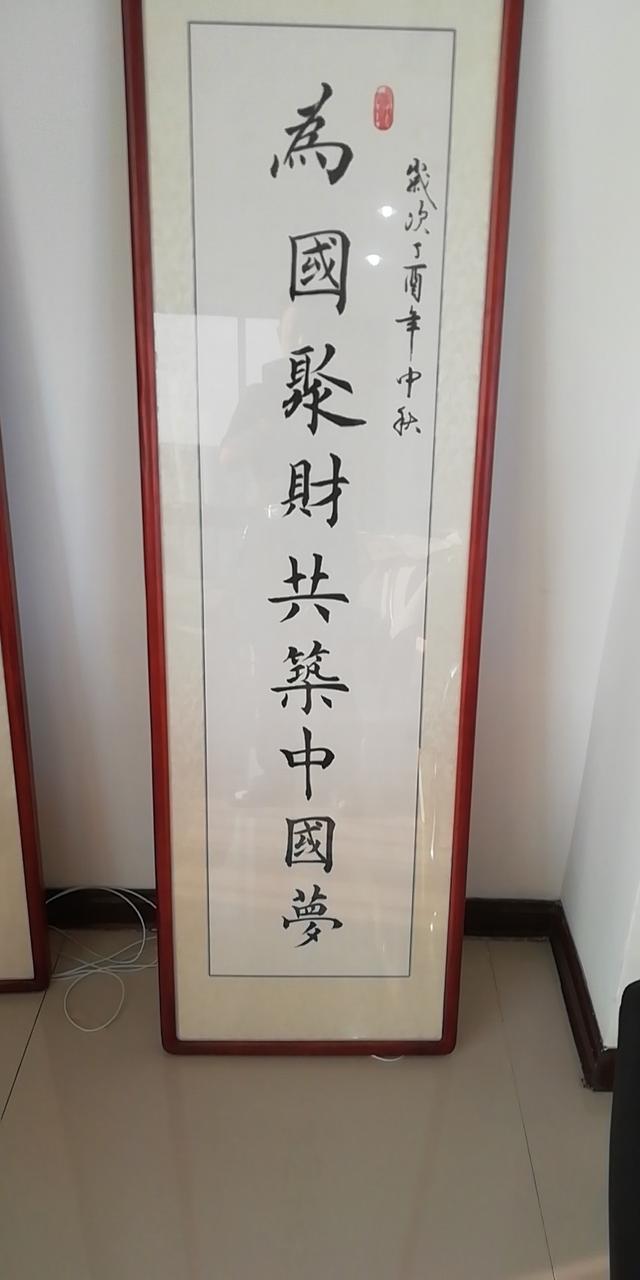 歲次丁酉年中秋
為國聚財共築中國夢